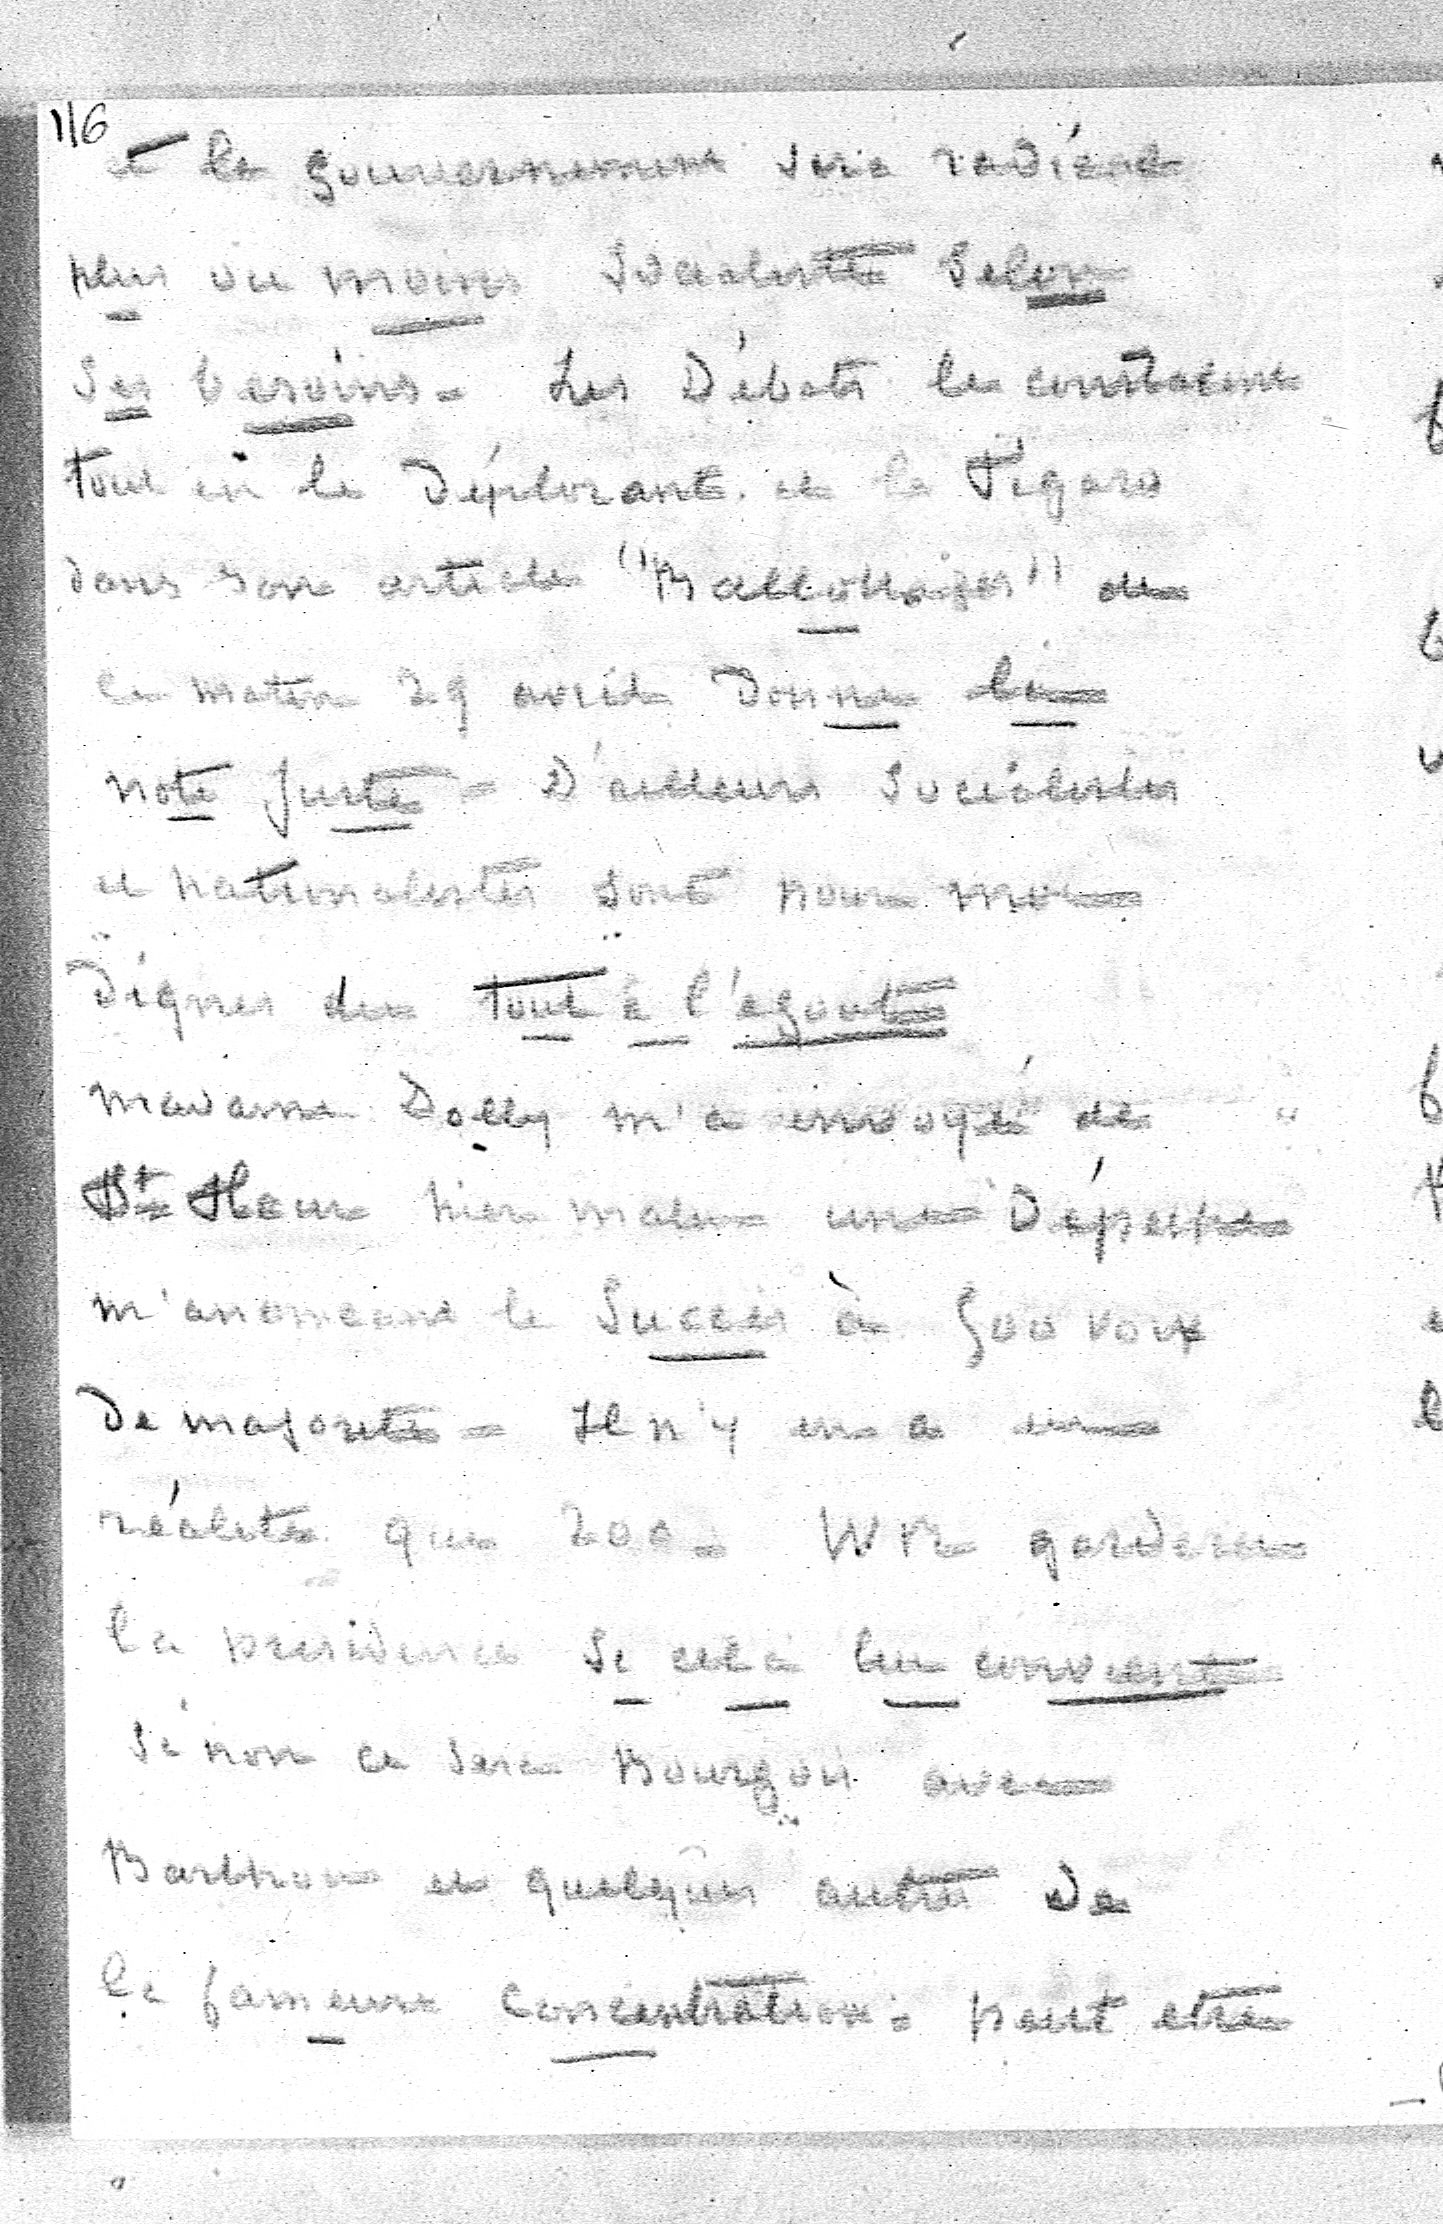 116
et le gouvernement sera radical
plus ou moins socialiste selon
ses besoins - Les Débats le constatent
tout en le déplorant et le Figaro
dans son article "Ballottages" de
ce matin 29 avril donne la
note juste - D'ailleurs socialistes
et nationalistes sont pour moi
dignes du tout à l'égout
madame Dolly m'a envoyé de
hier matin une dépêche
m'anonceant le succès à 500 voix
de majorité - Il n'y en a en
réalité que 200. WR gardera
la présidence si cela lui convient
si non ce sera Bourgois avec
Barthou et quelqu'un autre de
la fameuse concentration: peut etre